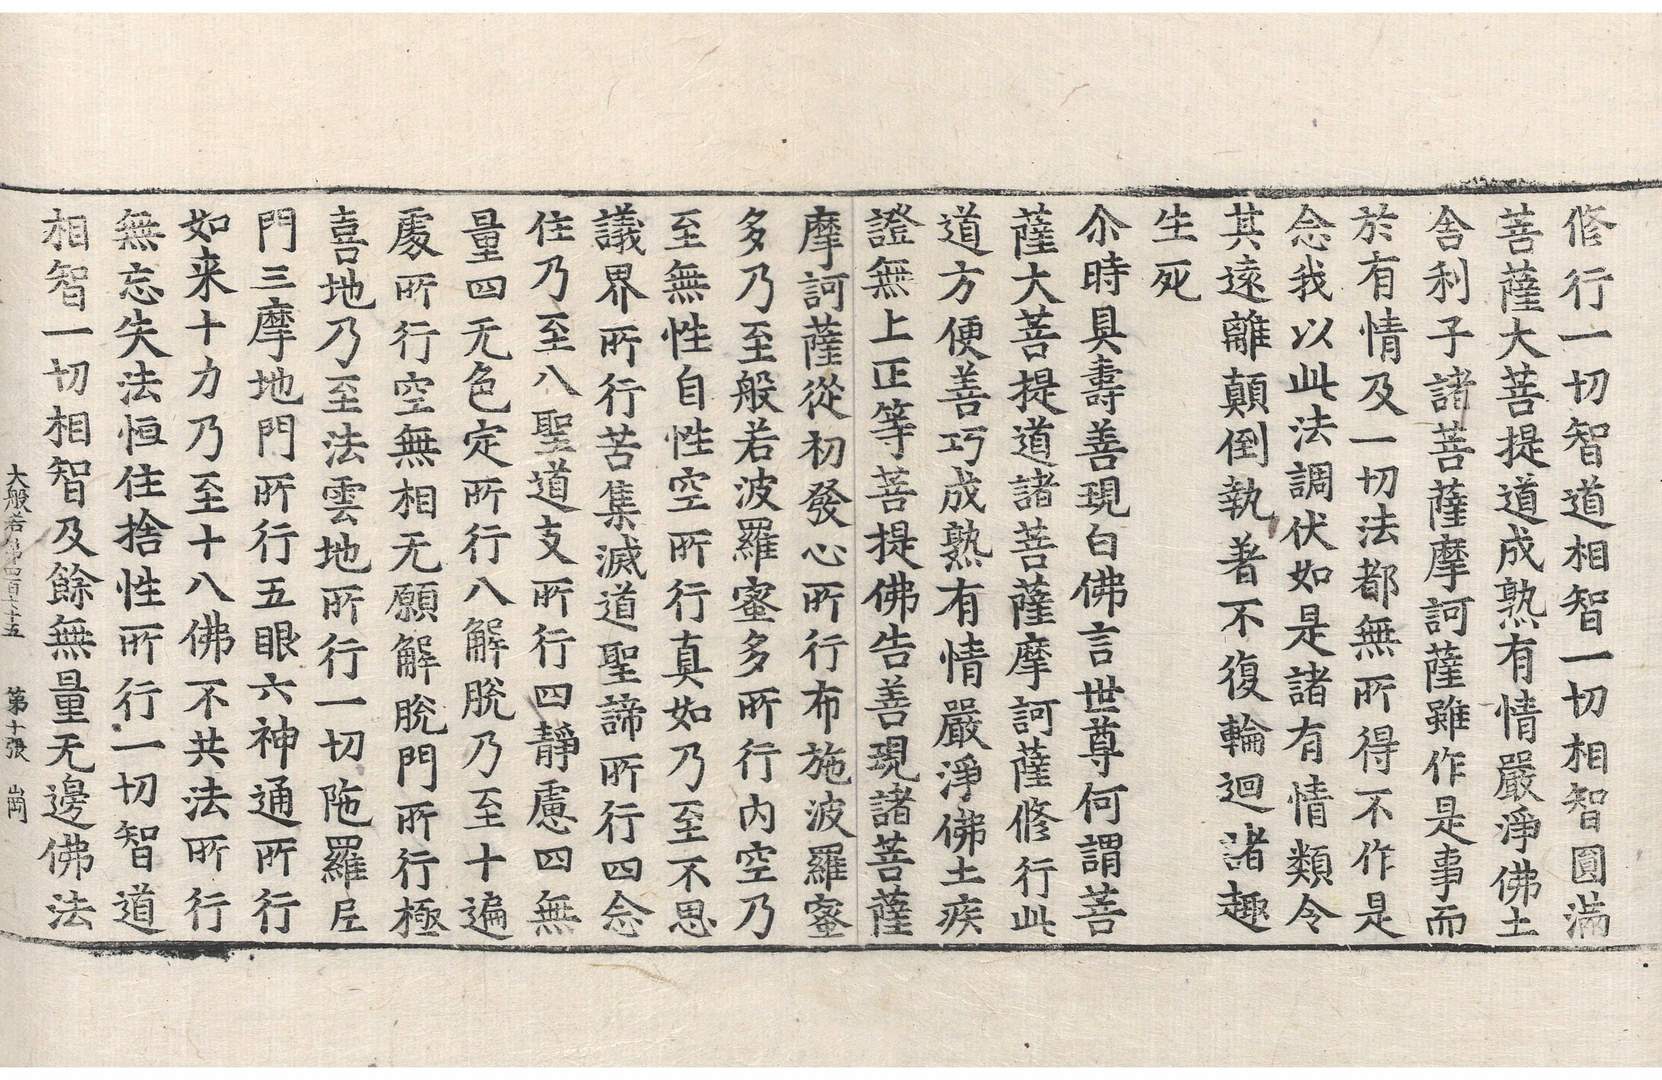 修行一切智道相智一切相智圓滿
菩薩大菩提道成熟有情嚴淨佛土
舍利子諸菩薩摩訶薩雖作是事而
於有情及一切法都無所得不作是
念我以此法調伏如是諸有情類令
其遠離顛倒執著不復輪迴諸趣
生死
尒時具壽善現白佛言世尊何謂菩
薩大菩提道諸菩薩摩訶薩修行此
道方便善巧成熟有情嚴淨佛土疾
證無上正等菩提佛告善現諸菩薩
摩訶薩從初發心所行布施波羅蜜
多乃至般若波羅蜜多所行內空乃
至無性自性空所行真如乃至不思
議界所行苦集滅道聖諦所行四念
住乃至八聖道支所行四靜慮四無
量四无色定所行八解脫乃至十遍
處所行空無相无願解脫門所行極
喜地乃至法雲地所行一切陁羅尼
門三摩地門所行五眼六神通所行
如来十力乃至十八佛不共法所行
無忘失法恒住捨性所行一切智道
相智一切相智及餘無量无邊佛法
大般若第四百六十五 第十張 崗